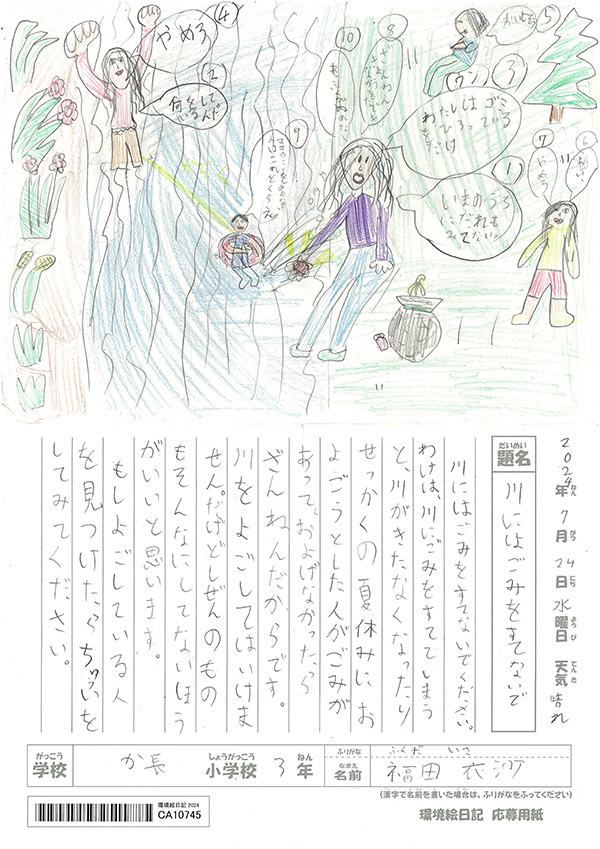 やめろ
④
②
何をして
いるんだ
⑩
⑧
⑨
⑤
(ウン)
③
わたしはゴミ
ひろっている
だけ
①
いまのうち
だれも
みてない。
⑥
⑦
やめろ
2024年7月24日水曜日 天気 晴れ
ねん
がつ
にち
ようび
てんき
だいめい
題名
川にはごみをすてないで
川にはごみをすてないでください。
わけは、川にごみをすててしまう
と、川がきたなくなったり
せっかくの夏休みにお
よごうとした人がごみが
あって、およげなかったら
ざんねんだからです。
川をよごしてはいけま
せん。だけどしぜんのもの
もそんなにしてないほう
がいいと思います。
もしよごしている人
を見つけたらちゅういを
してみてください。
がっこう
学校
か長
しょうがっこう
小学校
3
ねん
年
ふりがな
ふくだ いさ
なまえ
名前
福田 衣沙
(漢字で名前を書いた場合は、ふりがなをふってください)
環境絵日記 2024
CA10745
環境絵日記 応募用紙